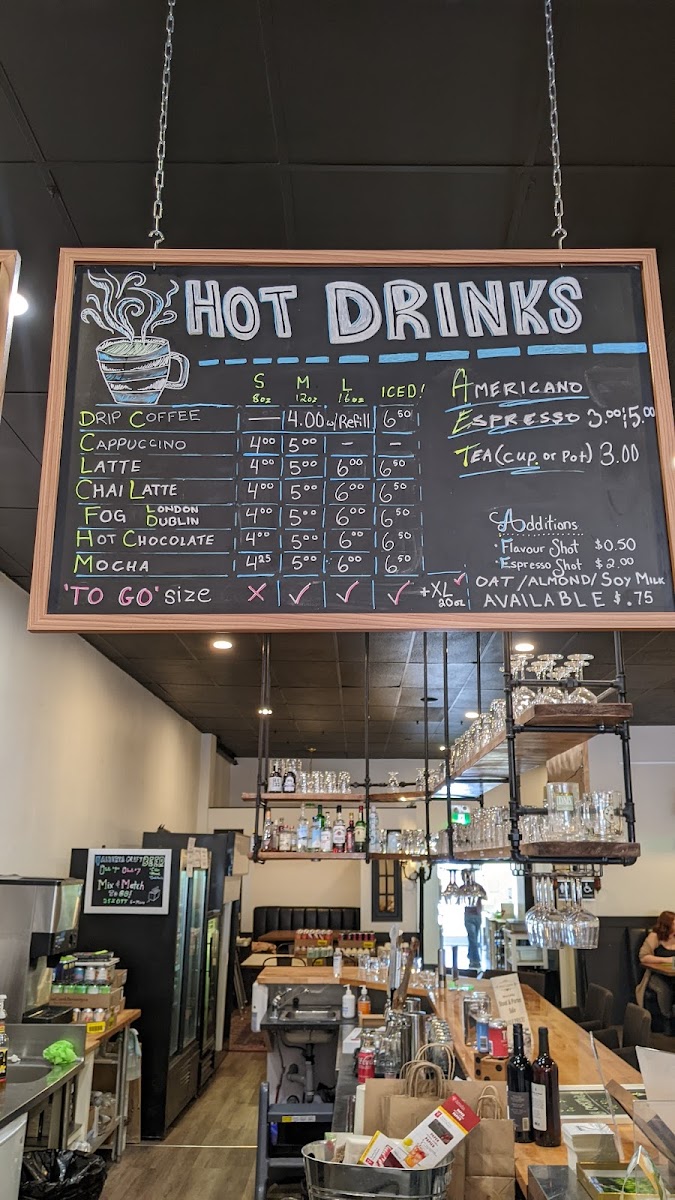 HOT DRINKS
S M L ICED!
8oz 12oz 16oz
DRIP COFFEE — 4.00 w/Refill 6.50
CAPPUCCINO 4.00 5.00 - -
LATTE 4.00 5.00 6.00 6.50
CHAI LATTE 4.00 5.00 6.00 6.50
FOG LONDON DUBLIN 4.00 5.00 6.00 6.50
HOT CHOCOLATE 4.00 5.00 6.00 6.50
MOCHA 4.25 5.00 6.00 6.50
'TO GO' size × ✓ ✓ ✓ +XL 20oz ✓
AMERICANO
ESPRESSO 3.00 5.00
TEA (CUP or Pot) 3.00
Additions
• Flavour Shot $0.50
• Espresso Shot $2.00
OAT/ALMOND/SOY MILK
AVAILABLE $.75
Mix & Match